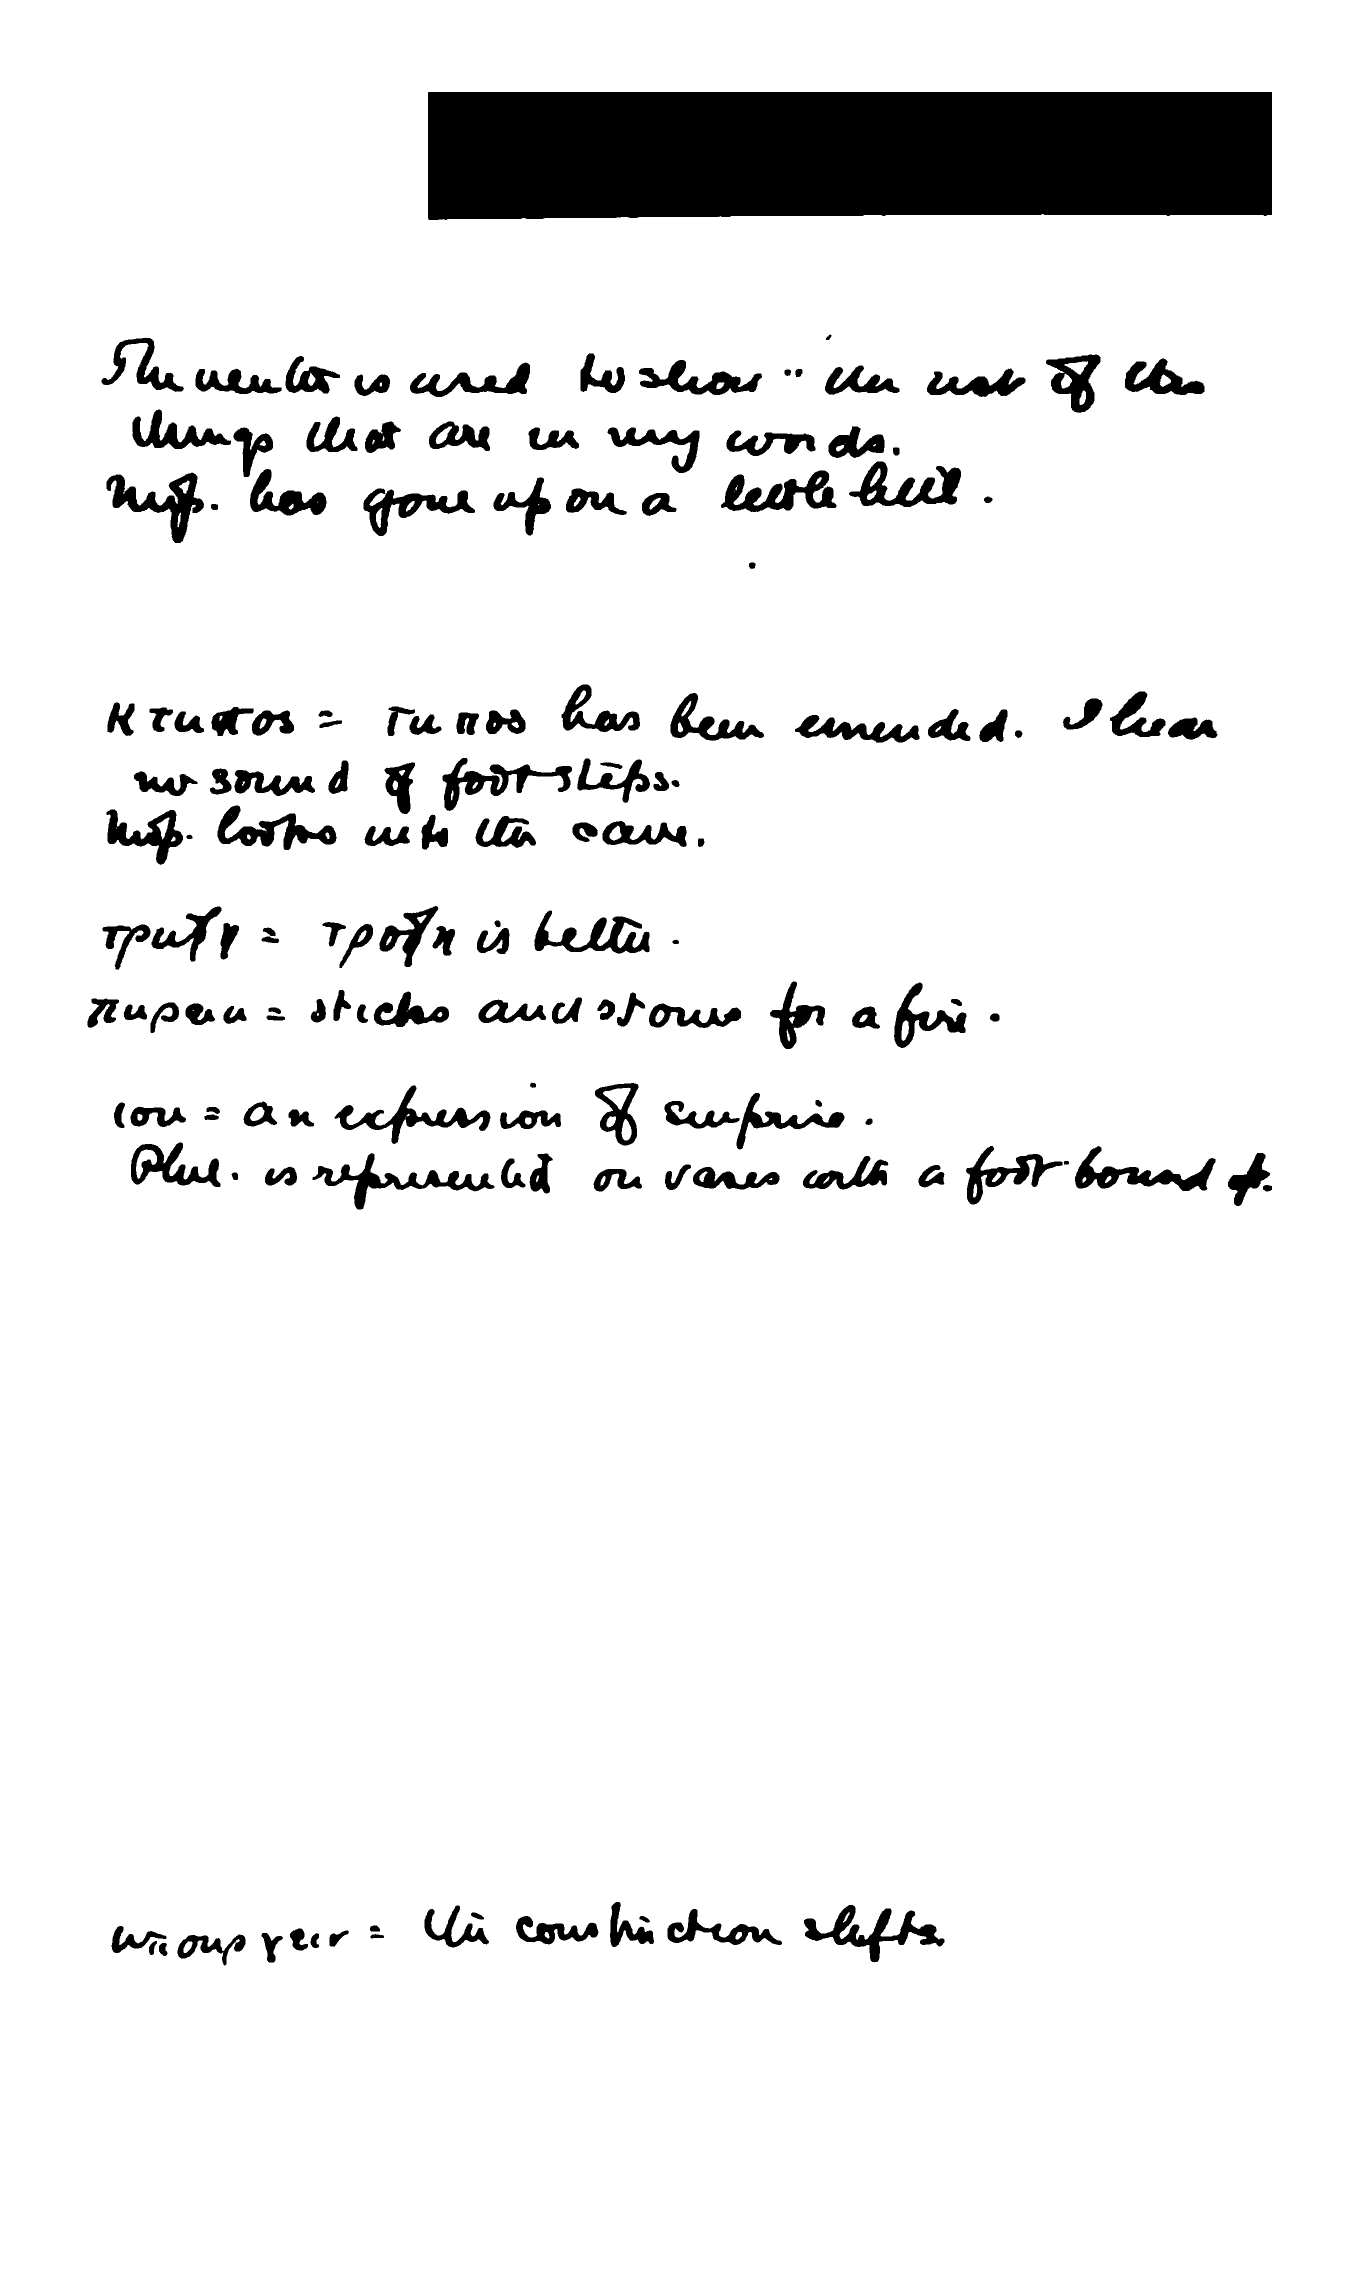 The neuter is used to show " the rest of the
things that are in my words.
Neop. has gone up on a little hill.
κτυπος = τυπος has been emended. I hear
no sound of footsteps.
Neop. looks into the cave.
τρυφη = τροφη is better.
πυρεια = sticks and stones for a fire.
ιου = an expression of surprise.
Phil. is represented on vases with a foot bound up.
υπουργειν = the construction shifts